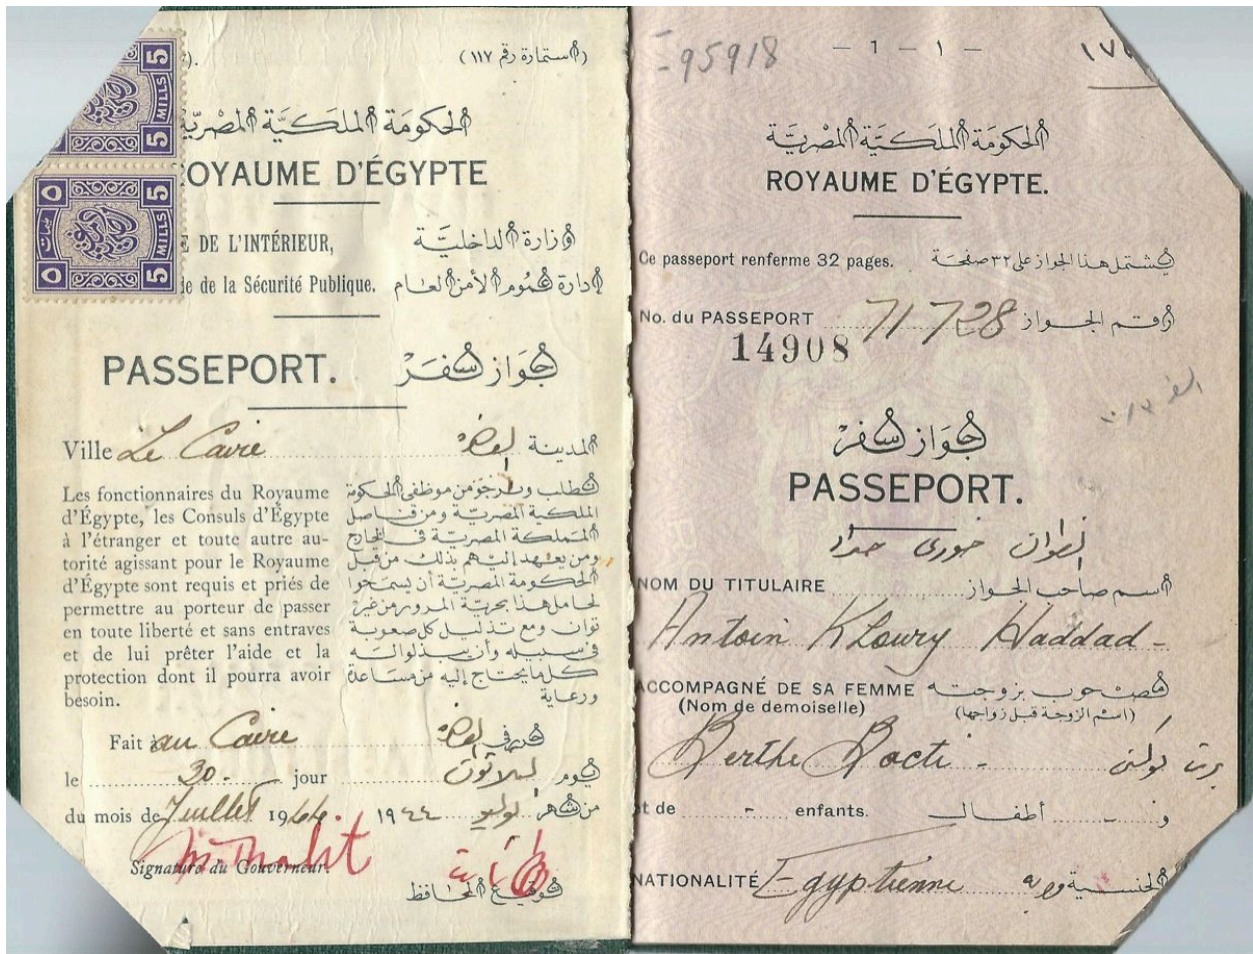 (استمارة رقم ١١٧)
5 5
MILLS
5 5
5
MILLS
5 5
الحكومة الملكية المصرية
OYAUME D'ÉGYPTE
E DE L'INTÉRIEUR, وزارة الداخلية
le de la Sécurité Publique. إدارة عموم الأمن العام
PASSEPORT. جواز سفر
Ville Le Caire المدينة
Les fonctionnaires du Royaume
d'Égypte, les Consuls d'Égypte
à l'étranger et toute autre au-
torité agissant pour le Royaume
d'Égypte sont requis et priés de
permettre au porteur de passer
en toute liberté et sans entraves
et de lui prêter l'aide et la
protection dont il pourra avoir
besoin.
نطلب ونرجو من موظفى الحكومة
الملكية المصرية ومن قناصل
المملكة المصرية فى الخارج
ومن يعهد إليهم بذلك من قبل
الحكومة المصرية أن يسمحوا
لحامل هذا بحرية المرور من غير
توان ومع تذليل كل صعوبة
فى سبيله وأن يبذلوا له
كل ما يحتاج إليه من مساعدة
ورعاية
Fait au Caire حرر فى
le 30 jour يوم الثلاثون
du mois de Juillet 1944 من شهر يوليو ١٩٤٤
Signature du Gouverneur.
توقيع المحافظ
95918 — 1 — ١ —
الحكومة الملكية المصرية
ROYAUME D'ÉGYPTE.
Ce passeport renferme 32 pages. يشتمل هذا الجواز على ٣٢ صفحة
No. du PASSEPORT 71728 رقم الجواز
14908
جواز سفر
PASSEPORT.
انطوان خورى حداد
NOM DU TITULAIRE اسم صاحب الجواز
Antoin Khoury Haddad -
ACCOMPAGNÉ DE SA FEMME مصحوب بزوجته
(Nom de demoiselle) (اسم الزوجة قبل زواجها)
Berthe Bocti -
t de - enfants. و - أطفال
NATIONALITÉ Egyptienne الجنسية